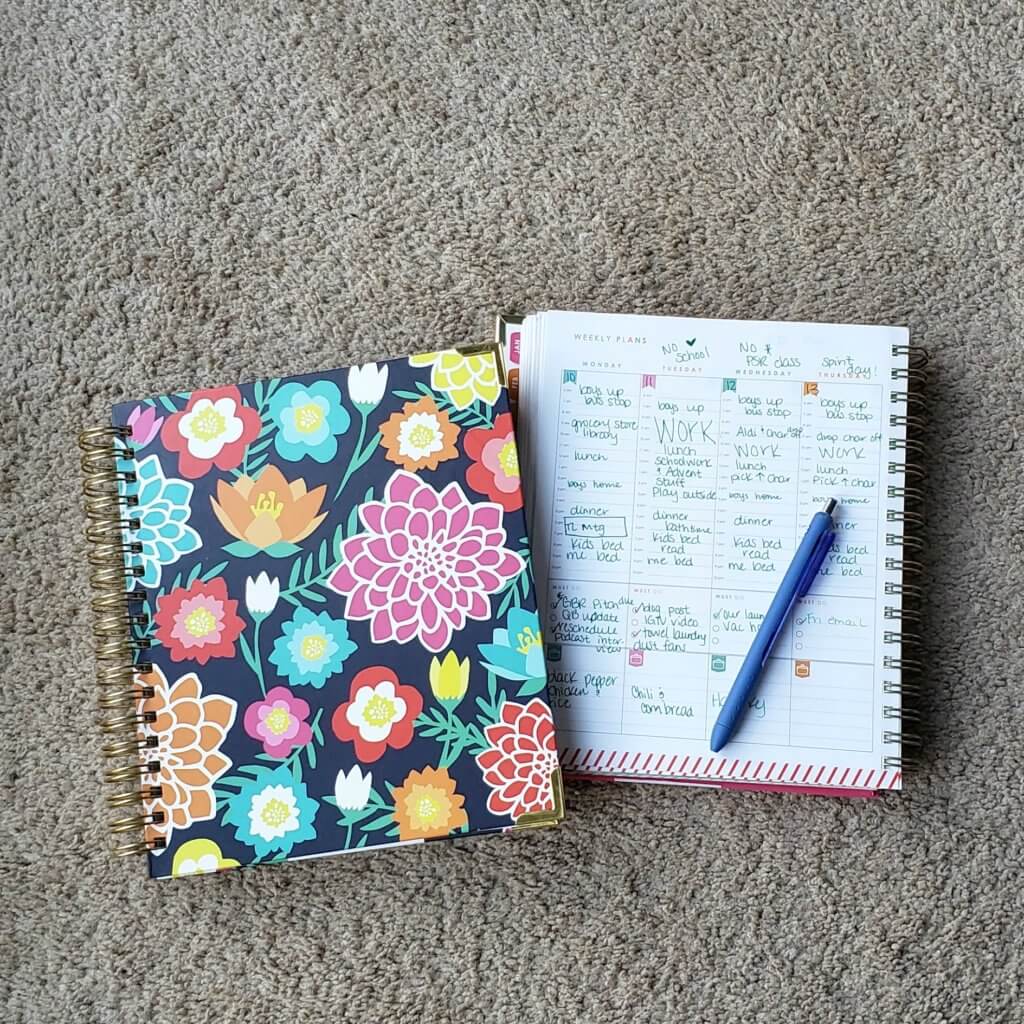 JAN
FEB
WEEKLY PLANS
NO school
NO PSR class
spirit day!
MONDAY
TUESDAY
WEDNESDAY
THURSDAY
10
boys up
bus stop
grocery store
library
lunch
boys home
dinner
mtg
kids bed
me bed
11
boys up
WORK
lunch
schoolwork
+ Advent
stuff
Play outside
dinner
bathtime
kids bed
read
me bed
12
boys up
bus stop
Aldi + char drop off
WORK
lunch
pick ↑ char
boys home
dinner
kids bed
read
me bed
13
boys up
bus stop
drop char off
WORK
lunch
pick ↑ char
boys home
dinner
kids bed
read
me bed
MUST DO
due
QB update
reschedule
podcast inter-
view
MUST DO
blog post
IGTV video
towel laundry
dust fans
MUST DO
our laun
vac
email
black pepper
chicken &
rice
Chili &
cornbread